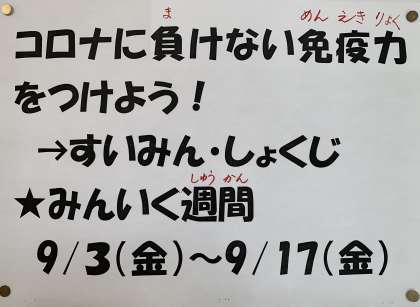 ま めん えき りょく
コロナに負けない免疫力
をつけよう！
→すいみん・しょくじ
しゅう かん
★みんいく週間
9/3(金)～9/17(金)